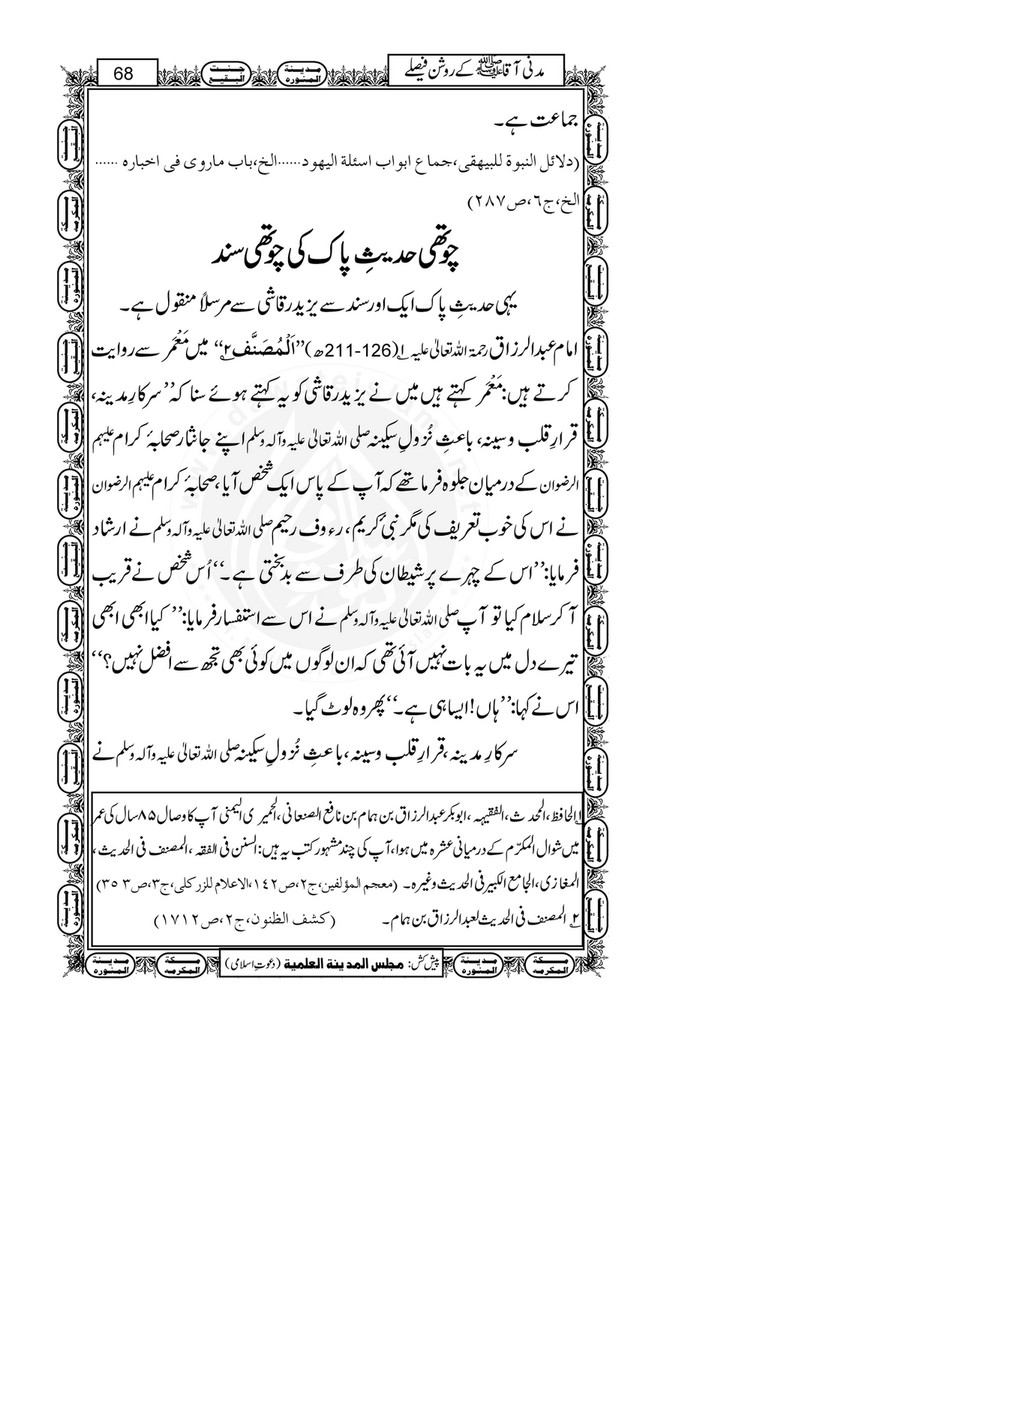 مدنی آقا ﷺ کے روشن فیصلے
68
جماعت ہے۔
(دلائل النبوة للبیهقی،جماع ابواب اسئلة الیهود......الخ،باب ماروی فی اخباره ......
الخ،ج٦،ص٢٨٧)
چوتھی حدیثِ پاک کی چوتھی سند
یہی حدیثِ پاک ایک اور سند سے یزید رقاشی سے مرسلاً منقول ہے۔
امام عبدالرزاق رحمۃ اللہ تعالیٰ علیہ ۱(126-211ھ)’’اَلْمُصَنَّف۲‘‘ میں مَعْمَر سے روایت
کرتے ہیں:مَعْمَر کہتے ہیں میں نے یزید رقاشی کو یہ کہتے ہوئے سنا کہ’’سرکارِ مدینہ،
قرارِ قلب وسینہ، باعثِ نُزولِ سکینہ صلی اللہ تعالیٰ علیہ وآلہ وسلم اپنے جانثار صحابۂ کرام علیہم
الرضوان کے درمیان جلوہ فرما تھے کہ آپ کے پاس ایک شخص آیا،صحابۂ کرام علیہم الرضوان
نے اس کی خوب تعریف کی مگر نبیٔ کریم، رء وف رحیم صلی اللہ تعالیٰ علیہ وآلہ وسلم نے ارشاد
فرمایا:’’اس کے چہرے پر شیطان کی طرف سے بدبختی ہے۔‘‘اُس شخص نے قریب
آ کر سلام کیا تو آپ صلی اللہ تعالیٰ علیہ وآلہ وسلم نے اس سے استفسار فرمایا:’’ کیا ابھی ابھی
تیرے دل میں یہ بات نہیں آئی تھی کہ ان لوگوں میں کوئی بھی تجھ سے افضل نہیں؟‘‘
اس نے کہا:’’ہاں!ایسا ہی ہے۔‘‘پھر وہ لوٹ گیا۔
سرکارِ مدینہ،قرارِ قلب وسینہ،باعثِ نُزولِ سکینہ صلی اللہ تعالیٰ علیہ وآلہ وسلم نے
۱الحافظ،المحدث،الفقیہ،ابوبکر عبدالرزاق بن ہمام بن نافع الصنعانی،الحمیری الیمنی آپ کا وصال ۸۵سال کی عمر
میں شوال المکرّم کے درمیانی عشرہ میں ہوا،آپ کی چند مشہور کتب یہ ہیں:السنن فی الفقہ،المصنف فی الحدیث،
المغازی،الجامع الکبیر فی الحدیث وغیرہ۔ (معجم المؤلفین،ج٢،ص١٤٢،الاعلام للزرکلی،ج٣،ص٣٥٣)
۲ المصنف فی الحدیث لعبدالرزاق بن ہمام۔ (کشف الظنون،ج٢،ص١٧١٢)
پیش کش: مجلس المدینة العلمیة (دعوتِ اسلامی)